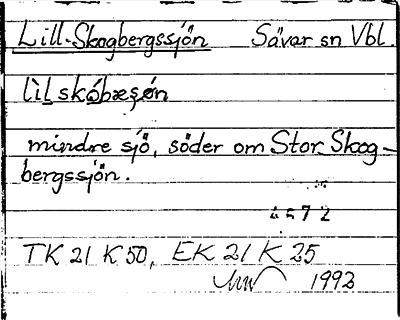 Lill-Skogbergssjön Sävar sn Vbl.
lìlskóbæşón
mindre sjö, söder om Stor-Skog-
bergssjön.
4572
TK 21 K 50, EK 21 K 25
1992